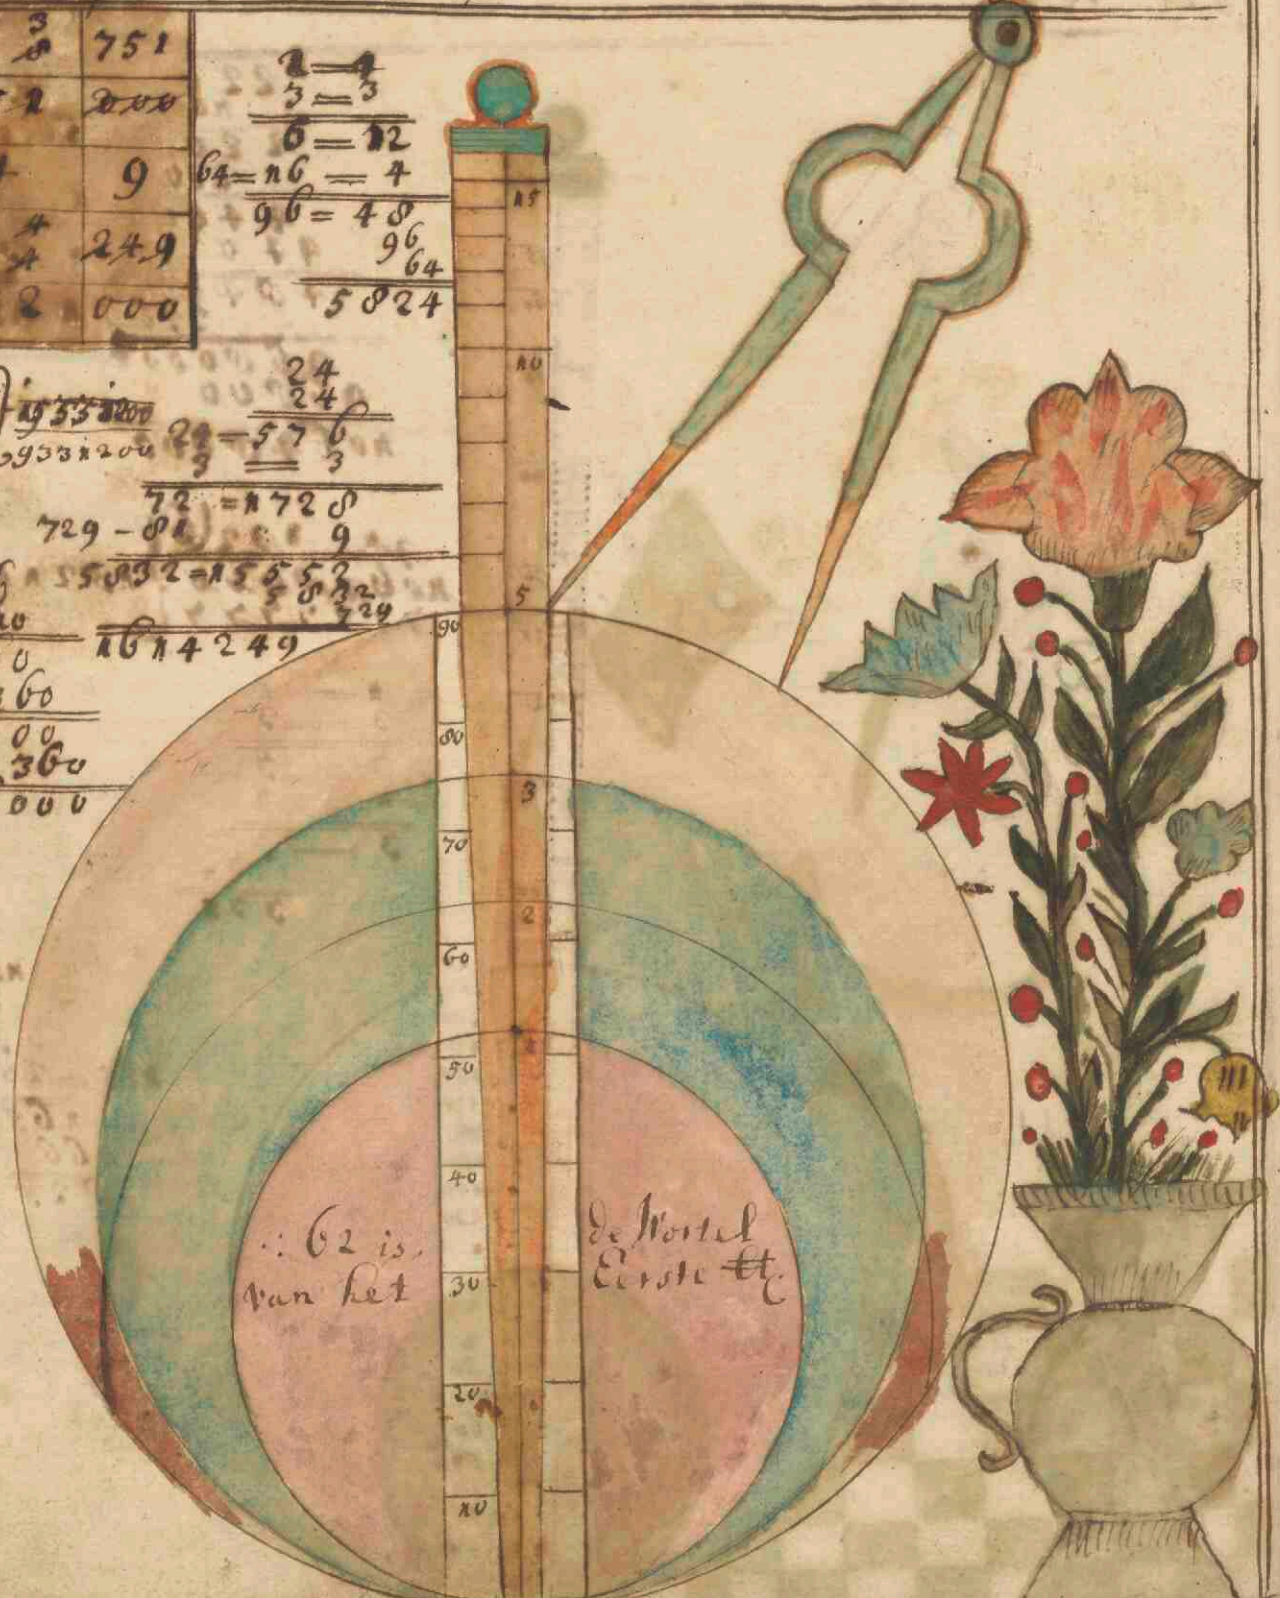 3
8 751
2 000
9
4
4 249
2 000
1=1
3=3
6=12
64=16=4
96=48
96
64
5824
24
24
24=576
3=3
72=1728
729-81 9
125832=15552
5832
729
1614249
19331200
0
360
00
360
000
15
10
5
3
2
1
90
80
70
60
50
40
30
20
10
62 is de Wortel
van het Eerste